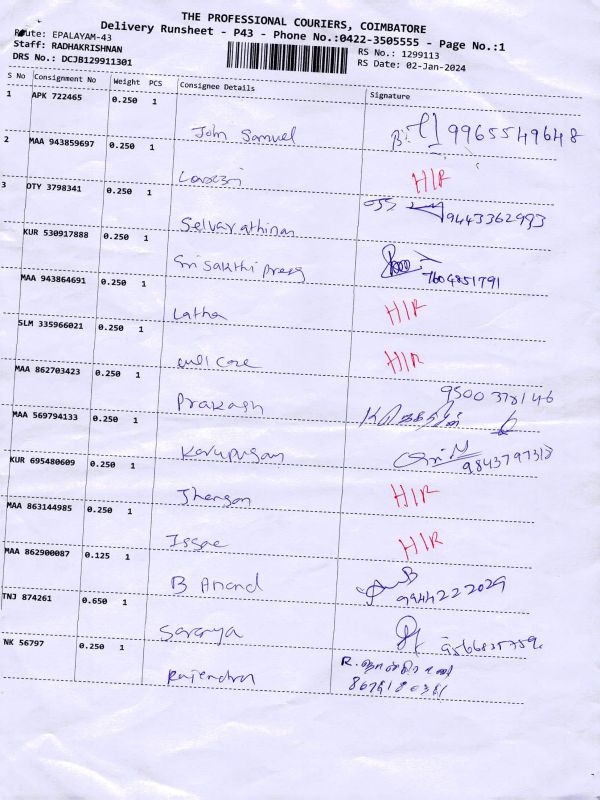 THE PROFESSIONAL COURIERS, COIMBATORE
Delivery Runsheet - P43 - Phone No.:0422-3505555 - Page No.:1
Route: EPALAYAM-43
Staff: RADHAKRISHNAN
RS No.: 1299113
DRS No.: DCJB129911301
RS Date: 02-Jan-2024
S No Consignment No Weight PCS Consignee Details Signature
1 APK 722465 0.250 1
John Samuel 9965549648
2 MAA 943859697 0.250 1
H/R
3 OTY 3798341 0.250 1
Selvarathinam 9443362993
KUR 530917888 0.250 1
Sri Sakthi Press 7604851791
MAA 943864691 0.250 1
Latha H/R
SLM 335966021 0.250 1
Well Care H/R
MAA 862703423 0.250 1
Prakash
MAA 569794133 0.250 1
Karupusam 9843797318
KUR 695480609 0.250 1
Jhenson H/R
MAA 863144985 0.250 1
Issac H/R
MAA 862900087 0.125 1
B Anand 9944222029
TNJ 874261 0.650 1
Saranya
NK 56797 0.250 1
Rajendran